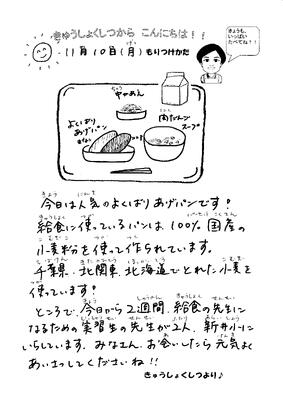 きゅうしょくしつから こんにちは!!
きょうも、
いっぱい
たべてね!!
11月10日(月)もりつけかた
中かめん
よくばり
あげパン
きなこ
肉だんご
スープ
今日は人気のよくばりあげパンです!
給食に使っているパンは、100%国産の
小麦粉を使って作られています。
千葉県、北関東、北海道でとれた小麦を
使っています!
ところで、今日から2週間、給食の先生に
なるための実習生の先生が2人、新井小に
いらしています。みなさん、お会いしたら元気よく
あいさつしてくださいね!!
きゅうしょくしつより♪